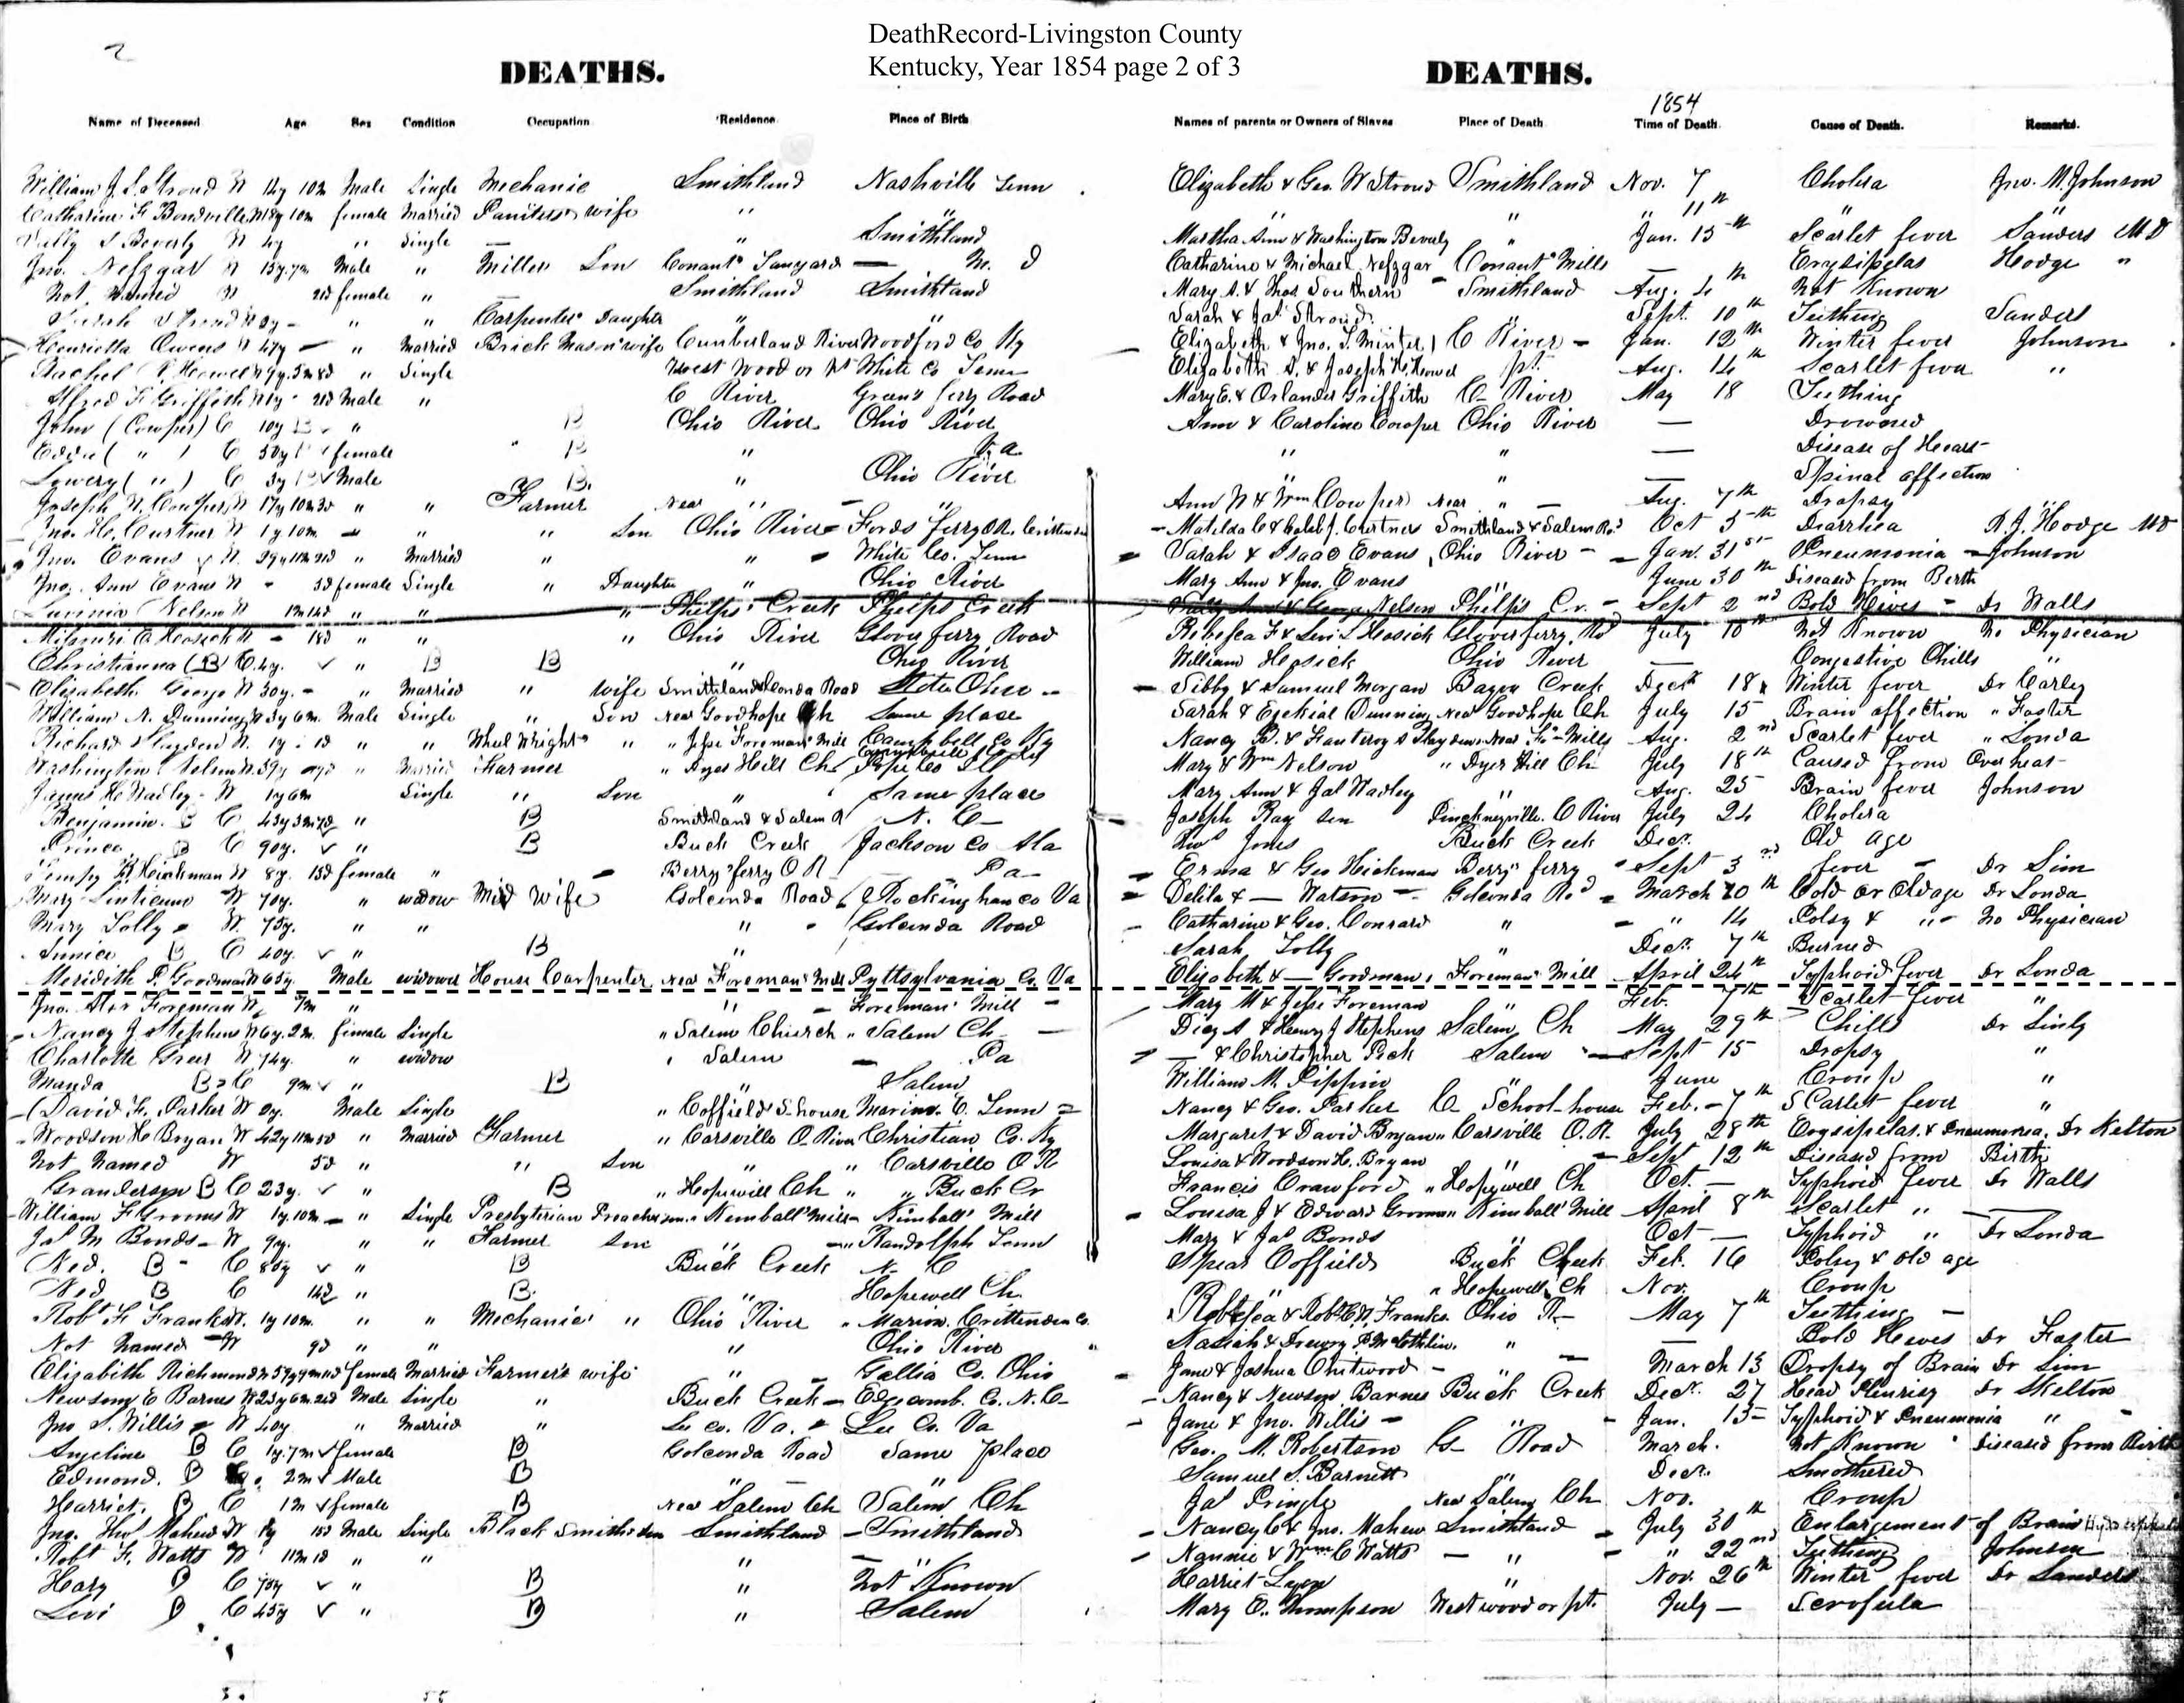 2
DeathRecord-Livingston County
Kentucky, Year 1854 page 2 of 3
DEATHS. DEATHS.
1854
Name of Deceased Age Sex Condition Occupation Residence Place of Birth Names of parents or Owners of Slaves Place of Death Time of Death Cause of Death. Remarks.
William J. S. Stroud W 14y 10m Male Single Mechanic Smithland Nashville Tenn Elizabeth & Geo. W Stroud Smithland Nov. 7 Cholera Jno. M. Johnson
Catharine F Bondville W 18y 10m female Married wife " " " " " 11th " "
S Beverly W 4y " Single — " Smithland Martha Ann & Washington Beverly " Jan. 15th Scarlet fever Sanders MD
Jno. Nefzgar W 15y 7m Male " Miller Son Conant's Tanyard — M. D Catharine & Michael Nefzgar Conant's Mills — Erysipelas Hodge "
Not Named W 2d female " Smithland Smithland Mary A. & Thos Southern Smithland Aug. 4th Not Known
Sarah Stroud W 2y - " " Carpenter Daughter " " Sarah & Jas Stroud Sept. 10th Teething Sanders
Henrietta Owens W 47y — " Married Brick Mason wife Cumberland River Woodford Co Ky Elizabeth & Jno. T. Minter C River - Jan. 12th Winter fever Johnson
Rachel Howel W 9y. 5m 8d " Single West Wood or Pt White Co Tenn Elizabeth A. & Joseph Howel pt. Aug. 14th Scarlet fever "
Alfred F Griffith W 1y 2d Male " C River Green's ferry Road Mary E. & Orlander Griffith C River May 18 Teething
John (Cowper) C 10y B " B Ohio River Ohio River Ann & Caroline Cowper Ohio River — Drowned
( " ) C 50y female B " Va. " " — Disease of Heart
Lowery ( " ) C 3y B Male B. " Ohio River " " — Spinal affection
Joseph N. Cowper W 17y 10m 3d " " Farmer Near " " Ann N & Wm Cowper Near " — Aug. 7th Dropsy
Jno. H. Curtner W 1y 10m " " " Son Ohio River Fords ferry O.R. Crittenden Matilda C & Caleb J. Curtner Smithland & Salem Rd Oct 5th Diarrhea R. J. Hodge MD
Jno. Evans W. 29y 11m 21d " Married " " White Co. Tenn Sarah & Isaac Evans Ohio River Jan. 31st Pneumonia Johnson
Jno. Ann Evans W - 3d female Single " Daughter " Ohio River Mary Ann & Jno. Evans " June 30th Diseased from Birth
Lavinia Nelson W 1m 14d " " " Phelps Creek Phelps Creek Sally Ann & George Nelson Phelps Cr. - Sept 2nd Bold Hives - Dr Walls
Missouri E. Hosick W - 18d " " " Ohio River Glover ferry Road Rebecca F & Levi L Hosick Glover ferry Rd July 10th Not Known No Physician
Christianna (B) C. 4y. " B B " Ohio River William Hosick Ohio River — Congestive Chills "
Elizabeth George W 30y. - " Married " wife Smithland Golconda Road State Ohio Sibby & Samuel Morgan Bayou Creek Decr 18 Winter fever Dr Carley
William N. Dunning W 3y 6m. Male Single " Son Near Goodhope Ch Same place Sarah & Ezekial Dunning Near Goodhope Ch July 15 Brain affection " Foster
Richard Slayden W. 1y 1d " " Wheel Wright " " Jesse Foreman Mill Campbell Co Ky Nancy B. & Slayden Near Fo Mills Aug. 2nd Scarlet fever " Londa
Washington Nelson W. 39y " Married Farmer " Dyer Hill Ch Pope Co Ill Mary & Wm Nelson " Dyer Hill Ch July 18th Caused from Over heat
James H. Wadley W 1y 6m Single " Son " Same place Mary Ann & Jas Wadley " Aug. 25 Brain fever Johnson
Benjamin. B C 43y " B Smithland & Salem R N. C Joseph Ray sen Pinckneyville. C River July 24 Cholera
Prince B C 90y. " B Buck Creek Jackson Co Ala Jones Buck Creek Dec. Old age
Tempy Hickman W 8y. 15d female " Berry's ferry O R Pa Erma & Geo Hickman Berry's ferry Sept 3rd fever Dr Sim
Mary Linticum W 70y. " widow Mid wife Golconda Road Rockingham co Va Delila & — Watson Golconda Rd March 20th Cold or Old age Dr Londa
Mary Lolly W. 75y. " " " Golconda Road Catharine & Geo. Conrard " " 14 Palsy & " No Physician
Eunice B C 40y. " B " Sarah Lolly " Decr. 7th Burned
Meridith P. Goodman W 65y Male widower House Carpenter Near Foreman's Mill Pyttsylvania Co. Va Elizabeth & — Goodman Foreman's Mill April 24th Typhoid fever Dr Londa
Jno. Foreman W. 7m " " Foreman's Mill Mary M & Jesse Foreman " Feb. 7th Scarlet fever "
Nancy J. Stephens W 6y. 2m. female Single " Salem Church " Salem Ch Dicy A & Henry J Stephens Salem Ch May 29th Chills Dr Sinly
Charlotte Greer W 74y. " widow " Salem Pa — & Christopher Salem Sept 15 Dropsy "
Manda B C 9m " B " Salem William M. Pippin " June Croup "
David F. Parker W 2y. Male Single " Coffields S-house Marion. C. Tenn Nancy & Geo. Parker C School-house Feb. 7th Scarlet fever "
Woodson H Bryan W 42y 11m 5d " Married Farmer " Carsville O. River Christian Co. Ky Margaret & David Bryan " Carsville O.R. July 28th Erysipelas & Pneumonia. Dr Kelton
Not Named W 5d " " Son " " Carsville O R Louisa & Woodson H. Bryan " Sept 12th Diseased from Birth
Granderson B C 23y. " B " Hopewill Ch " " Buck Cr Francis Crawford " Hopewell Ch Oct. — Typhoid fever Dr Walls
William F Grooms W 1y. 10m " Single Presbyterian Preacher son " Kimball Mills Kimball Mill Louisa J & Edward Grooms Kimball Mill April 8th Scarlet "
Jas M Bonds W 9y. " " Farmer Son " " Randolph Tenn Mary & Jas Bonds " Oct — Typhoid " Dr Londa
Ned. B C 80y " B Buck Creek N. C Spear Coffield Buck Creek Feb. 16 Palsy & old age
Ned B C 14d " B. " Hopewell Ch " " Hopewell Ch Nov. Croup
Robt F Franks W. 1y 10m. " " Mechanic " Ohio River " Marion. Crittenden Co. Rebecca & Robt C N. Franks Ohio R May 7th Teething
Not Named W 9d " " " Ohio River " Drewry " — Bold Hives Dr Foster
Elizabeth Richmond W 59y 9m female Married Farmer's wife " Gallia Co. Ohio Jane & Joshua Chitwood March 13 Dropsy of Brain Dr Sim
Newsom E Barnes W 23y 6m 2d Male Single " Buck Creek Edgcomb. Co. N. C Nancy & Newsom Barnes Buck Creek Decr. 27 Head Pleurisy Dr Skelton
Jno S. Willis W 40y " Married " Lee co. Va. Lee Co. Va Jane & Jno. Willis " Jan. 15 Typhoid & Pneumonia "
Angeline B C 1y. 7m female B Golconda Road Same place Geo. M. Robertson G Road March. Not Known Diseased from Birth
Edmond. B C. 2m Male B " " Samuel S. Barnett " Decr. Smothered
Harriet. B C 1m female B Near Salem Ch Salem Ch Jas Pringle Near Salem Ch Nov. Croup
Jno. Mahew W 8y 15d Male Single Black Smiths son Smithland Smithland Nancy C & Jno. Mahew Smithland July 30th Enlargement of Brain
Robt F. Watts W 11m 1d " " " " Nannie & Wm C Watts " " 22nd Teething Johnson
Hary B C 75y " B " Not Known Harriet Lyon " Nov. 26th Winter fever Dr Sanders
Levi B C 45y " B " Salem Mary E. Thompson Westwood or pt. July — Scrofula